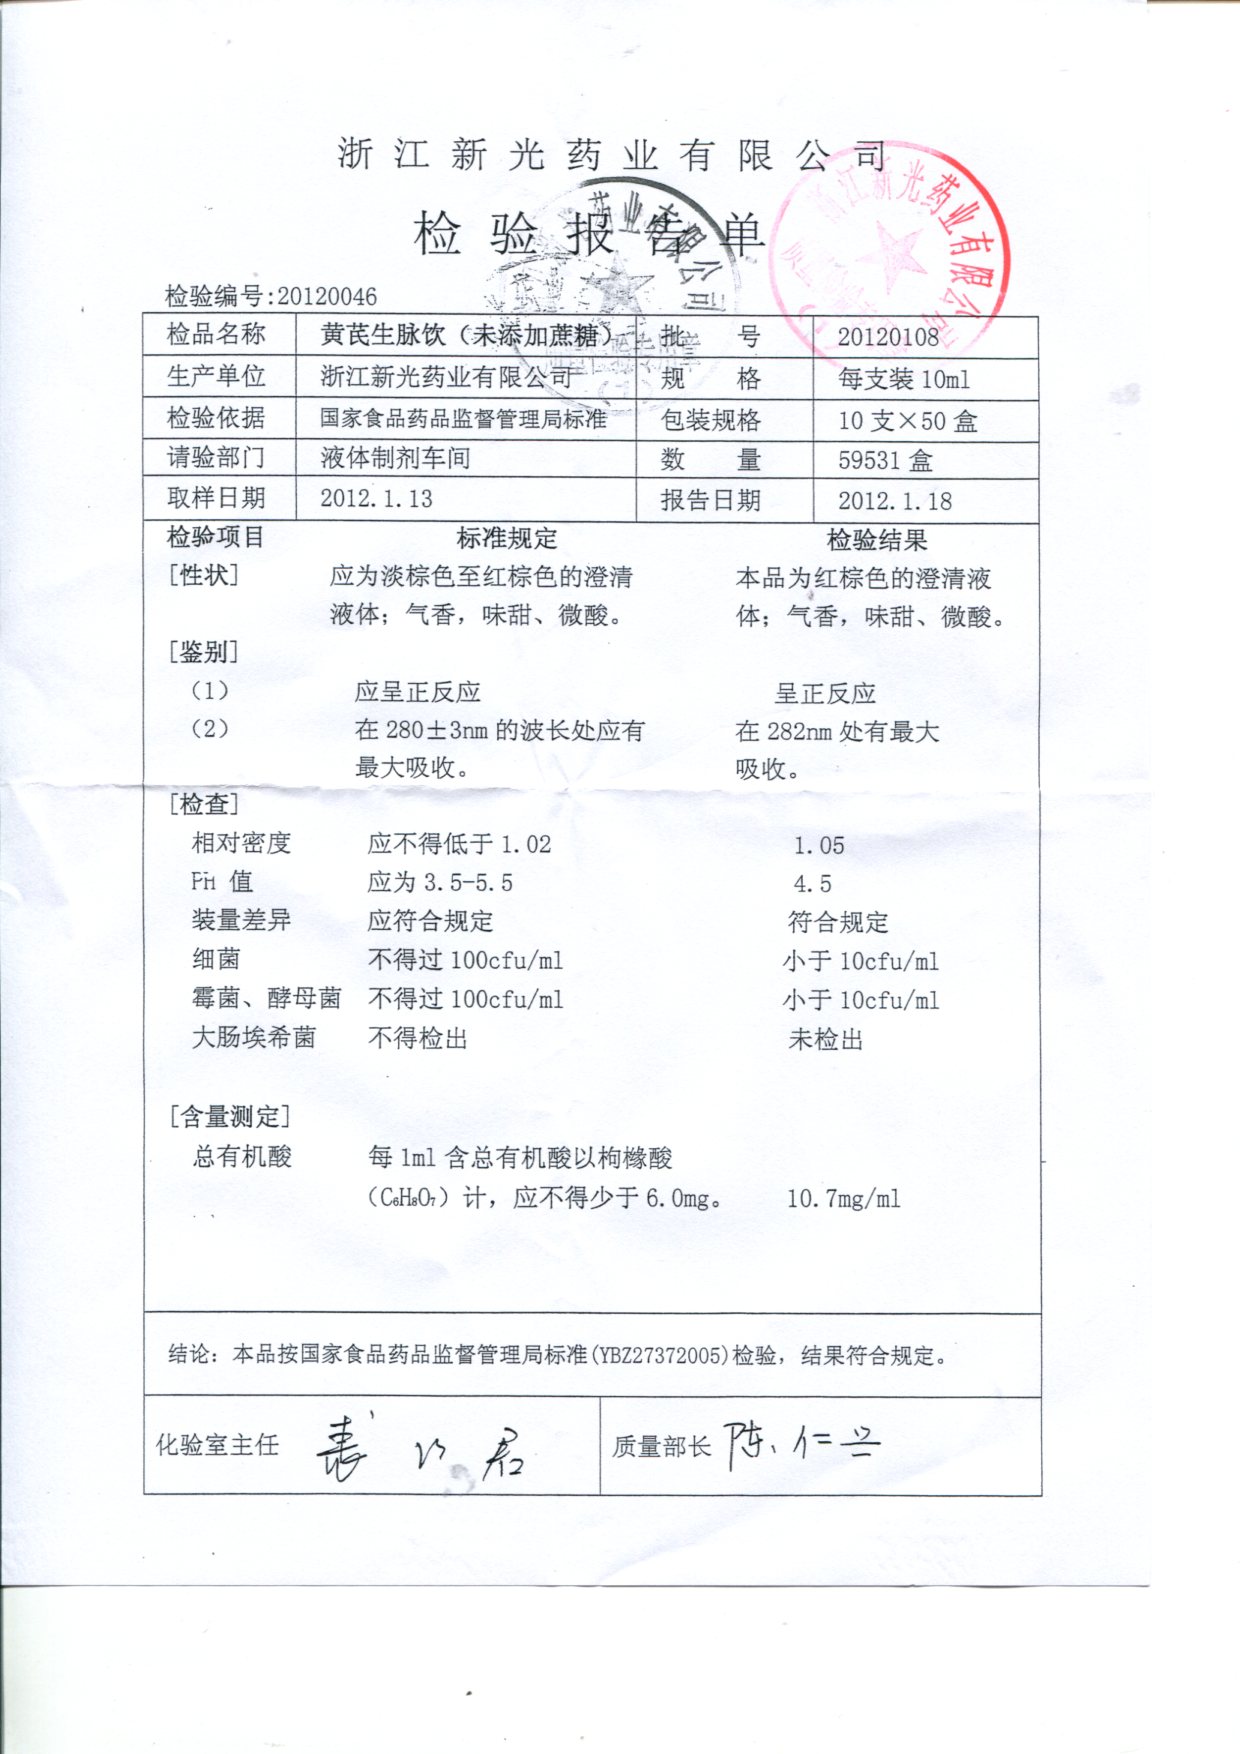 浙江新光药业有限公司
检验报告单
检验编号:20120046
检品名称 黄芪生脉饮（未添加蔗糖） 批 号 20120108
生产单位 浙江新光药业有限公司 规 格 每支装10ml
检验依据 国家食品药品监督管理局标准 包装规格 10支×50盒
请验部门 液体制剂车间 数 量 59531盒
取样日期 2012.1.13 报告日期 2012.1.18
检验项目 标准规定 检验结果
[性状] 应为淡棕色至红棕色的澄清 本品为红棕色的澄清液
液体；气香，味甜、微酸。 体；气香，味甜、微酸。
[鉴别]
（1） 应呈正反应 呈正反应
（2） 在280±3nm的波长处应有 在282nm处有最大
最大吸收。 吸收。
[检查]
相对密度 应不得低于1.02 1.05
PH 值 应为3.5-5.5 4.5
装量差异 应符合规定 符合规定
细菌 不得过100cfu/ml 小于10cfu/ml
霉菌、酵母菌 不得过100cfu/ml 小于10cfu/ml
大肠埃希菌 不得检出 未检出
[含量测定]
总有机酸 每1ml含总有机酸以枸橼酸
（C₆H₈O₇）计，应不得少于6.0mg。 10.7mg/ml
结论：本品按国家食品药品监督管理局标准(YBZ27372005)检验，结果符合规定。
化验室主任 质量部长 陈仁兴
浙江新光药业有限公司
药业有限公司